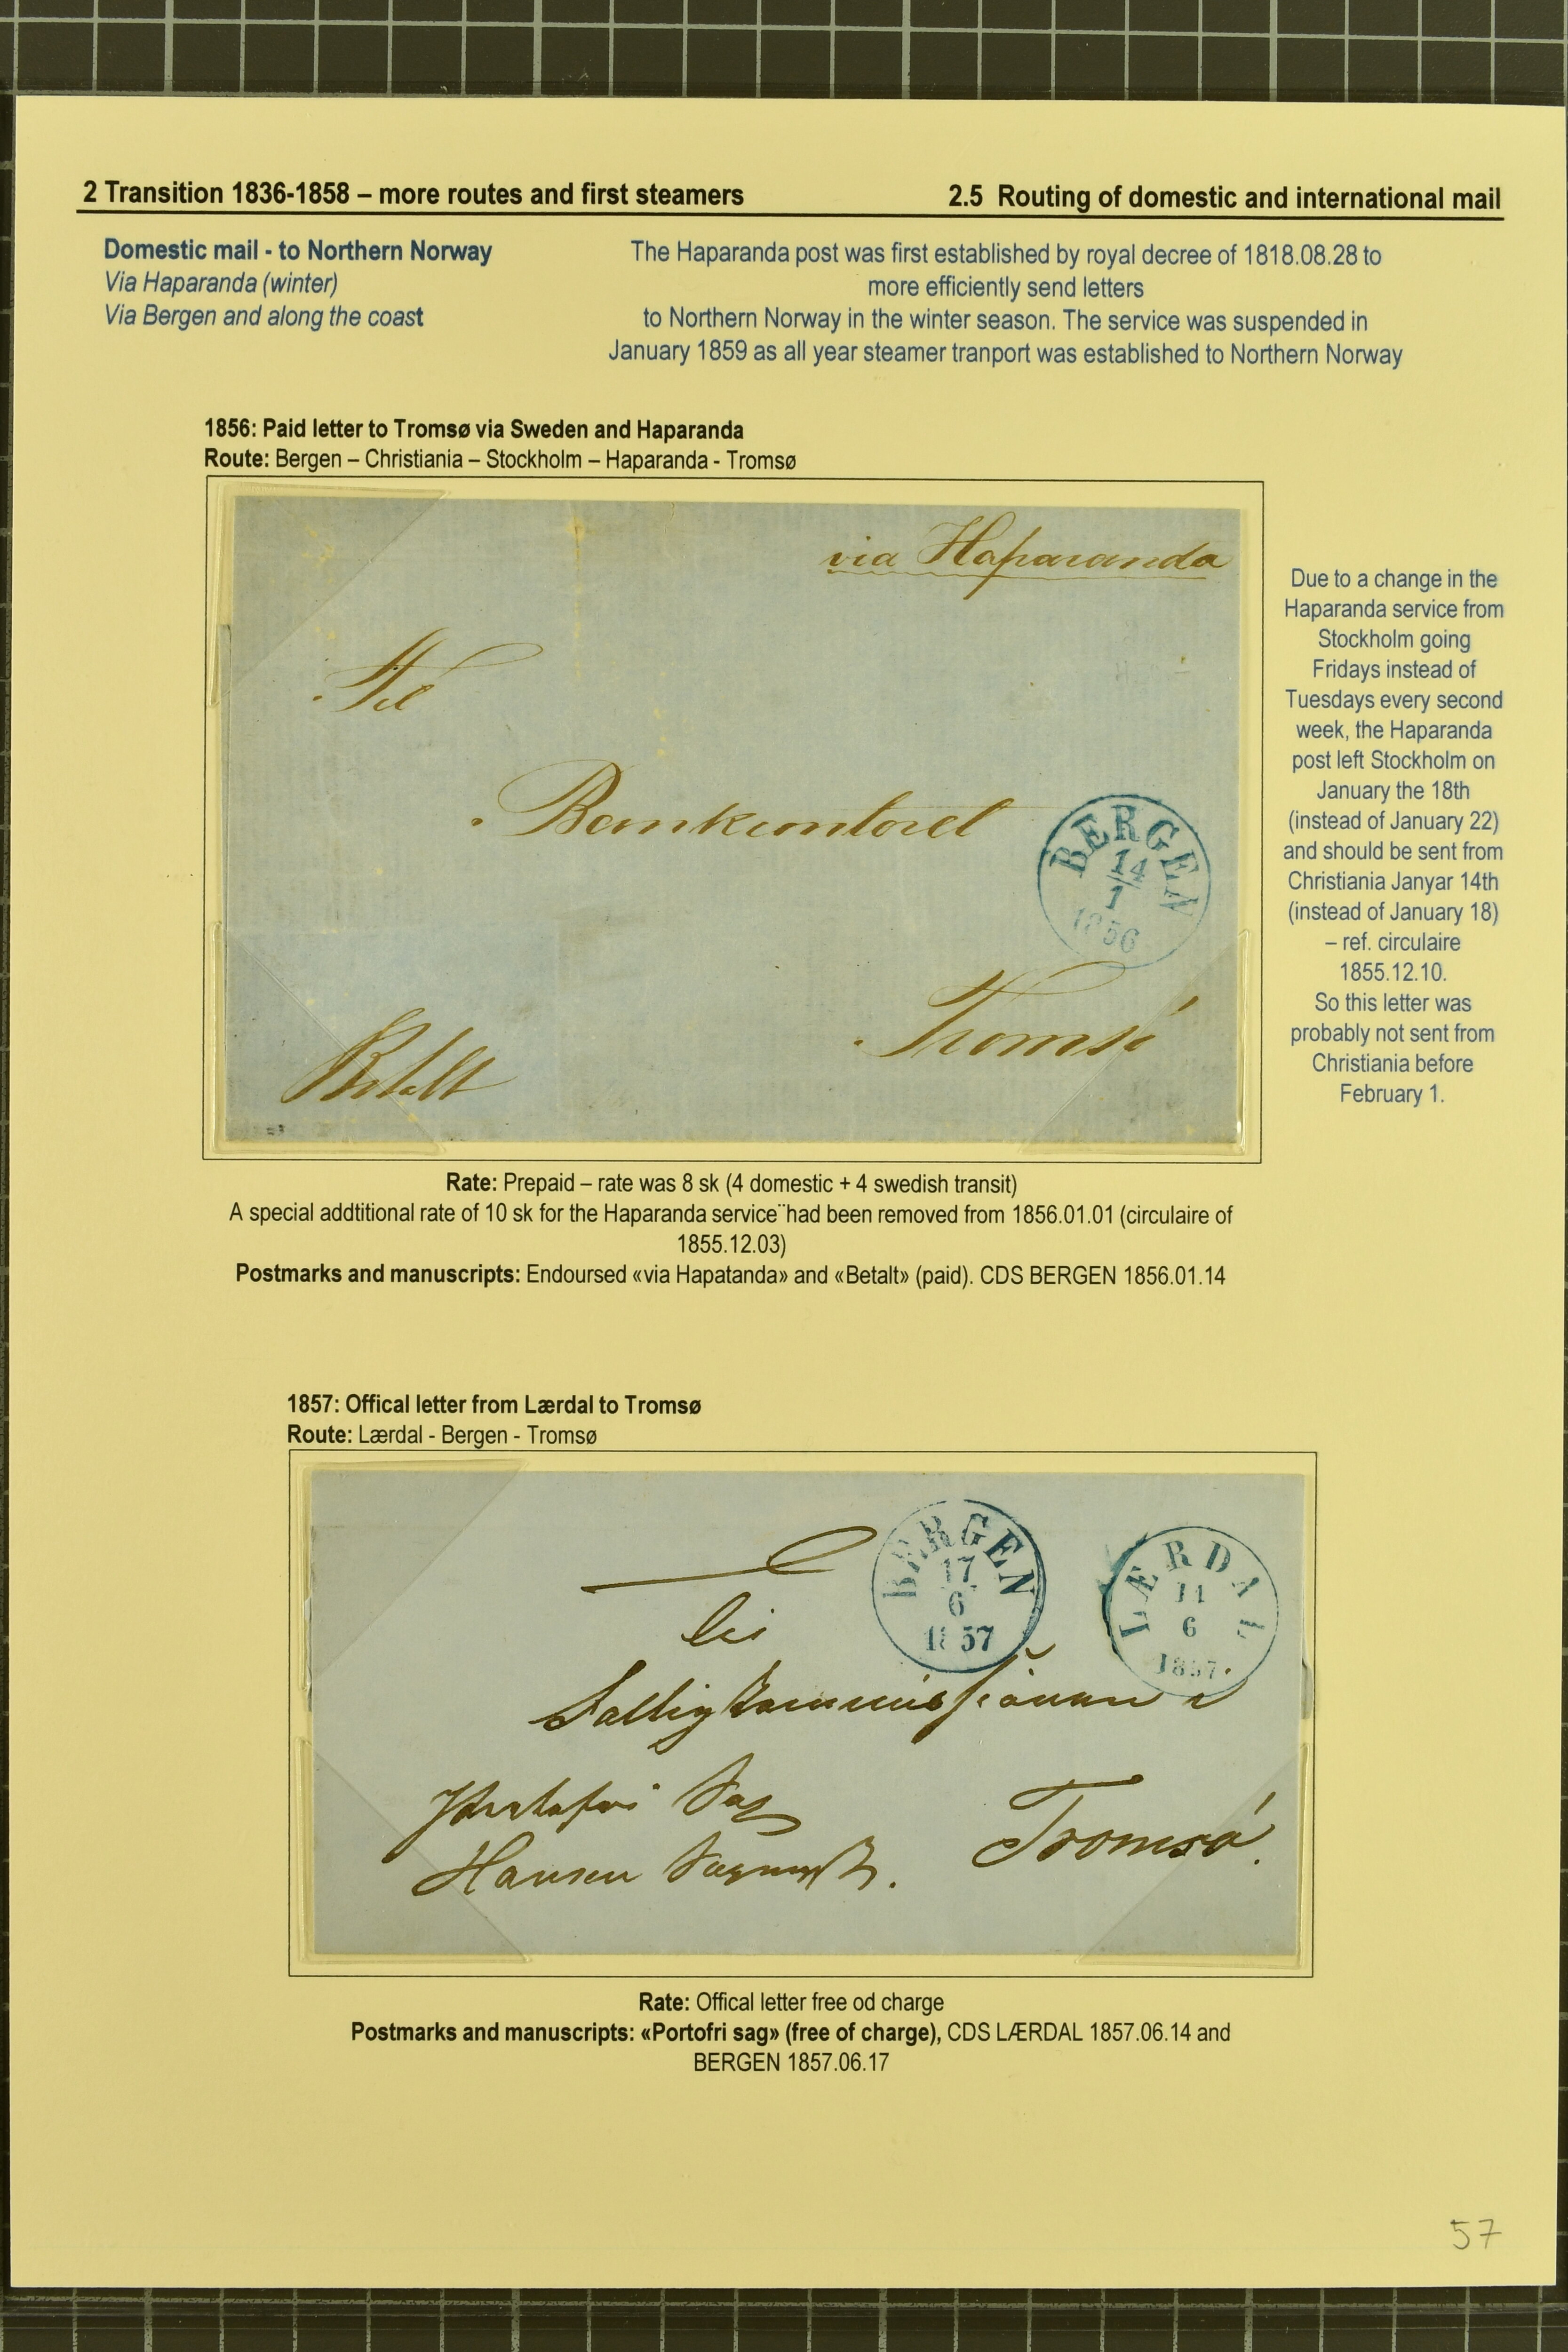 2 Transition 1836-1858 – more routes and first steamers
2.5 Routing of domestic and international mail
Domestic mail - to Northern Norway
Via Haparanda (winter)
Via Bergen and along the coast
The Haparanda post was first established by royal decree of 1818.08.28 to
more efficiently send letters
to Northern Norway in the winter season. The service was suspended in
January 1859 as all year steamer tranport was established to Northern Norway
1856: Paid letter to Tromsø via Sweden and Haparanda
Route: Bergen – Christiania – Stockholm – Haparanda - Tromsø
via Haparanda
Til
Bankcontoret
BERGEN
14
1
1856
Tromsø
Betalt
Due to a change in the
Haparanda service from
Stockholm going
Fridays instead of
Tuesdays every second
week, the Haparanda
post left Stockholm on
January the 18th
(instead of January 22)
and should be sent from
Christiania Janyar 14th
(instead of January 18)
– ref. circulaire
1855.12.10.
So this letter was
probably not sent from
Christiania before
February 1.
Rate: Prepaid – rate was 8 sk (4 domestic + 4 swedish transit)
A special addtitional rate of 10 sk for the Haparanda service¨had been removed from 1856.01.01 (circulaire of
1855.12.03)
Postmarks and manuscripts: Endoursed «via Hapatanda» and «Betalt» (paid). CDS BERGEN 1856.01.14
1857: Offical letter from Lærdal to Tromsø
Route: Lærdal - Bergen - Tromsø
BERGEN
17
6
1857
LÆRDAL
14
6
1857.
Tromsø.
Hansen
Rate: Offical letter free od charge
Postmarks and manuscripts: «Portofri sag» (free of charge), CDS LÆRDAL 1857.06.14 and
BERGEN 1857.06.17
57